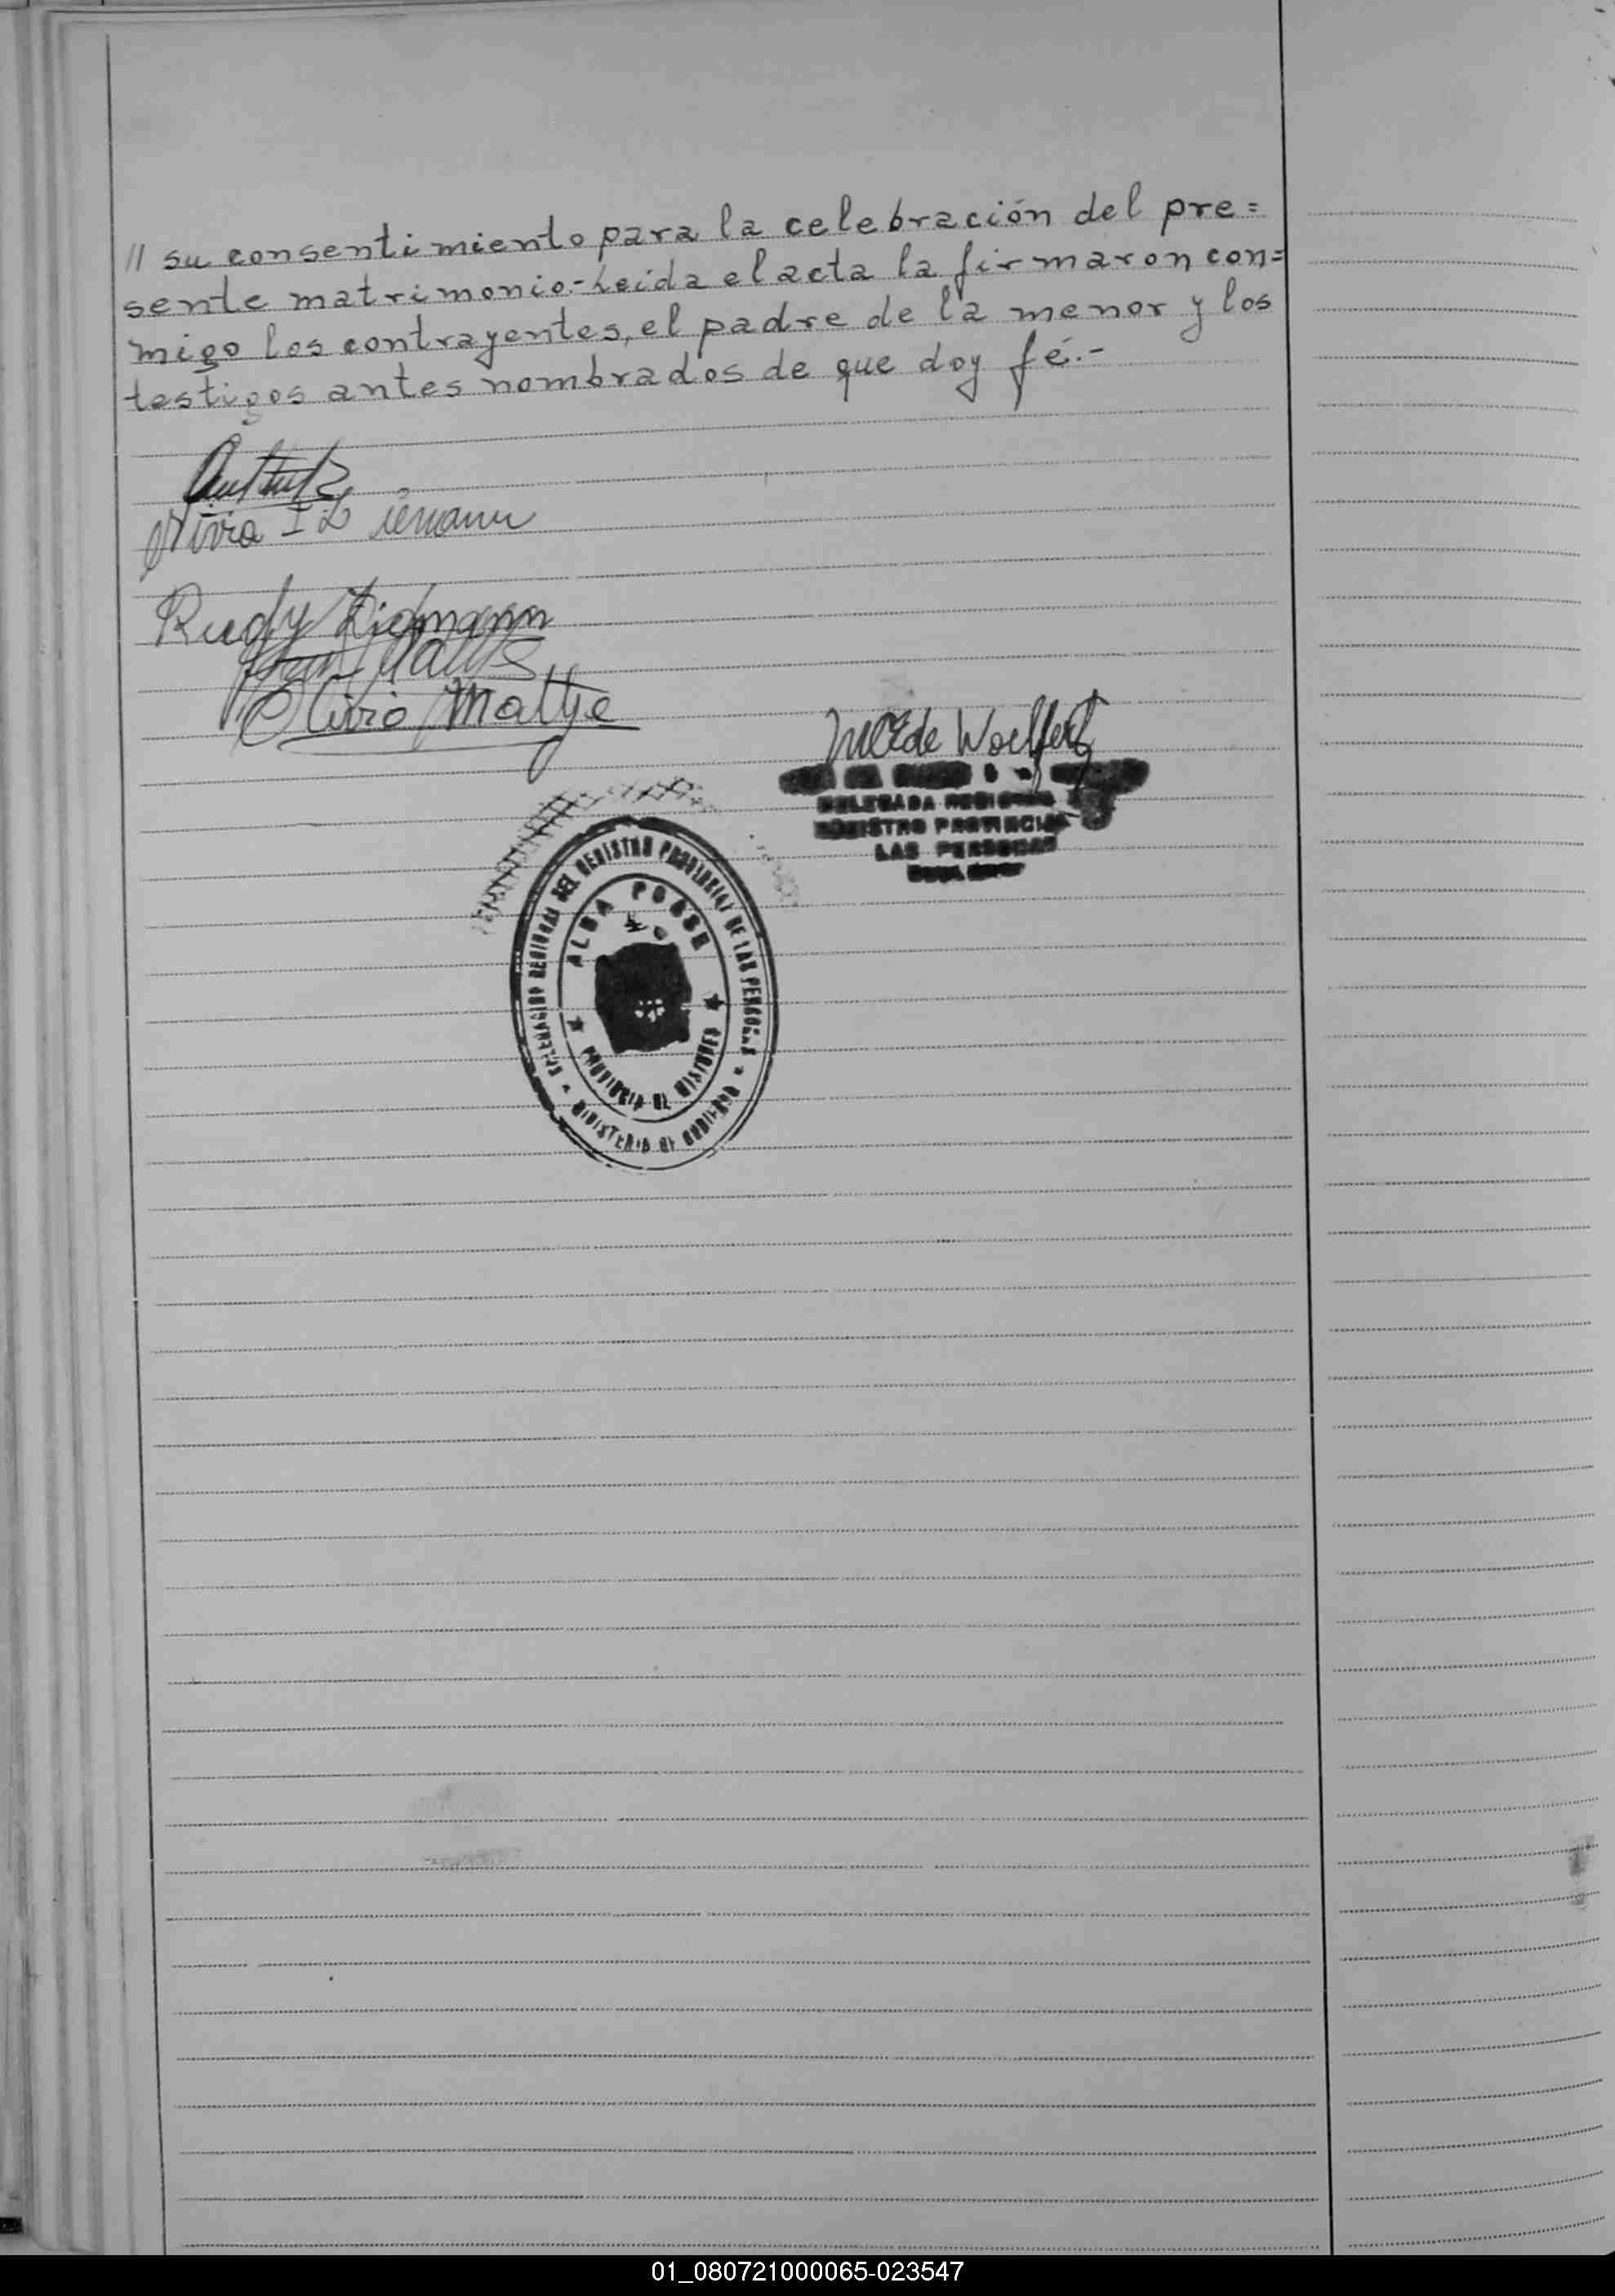 // su consentimiento para la celebración del pre=
sente matrimonio.- Leida el acta la firmaron con=
migo los contrayentes, el padre de la menor y los
testigos antes nombrados de que doy fé.-
Nivia I
Rudy Ziemann
Olivio Mattje
de Woelfert
DELEGADA REGIONAL
REGISTRO PROVINCIAL
LAS PERSONAS
DELEGACION REGIONAL DEL REGISTRO PROVINCIAL DE LAS PERSONAS
ALBA POSSE
PROVINCIA DE MISIONES
MINISTERIO DE GOBIERNO
01_080721000065-023547